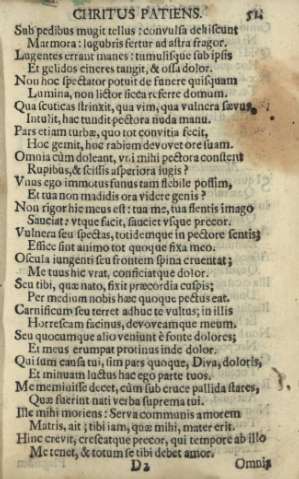 CHRITUS PATIENS. 51
Sub pedibus mugit tellus: convulsa dehiscunt
Marmora: lugubris fertur ad astra fragor.
Lugentes errant manes: tumulisque sub ipsis
Et gelidos cineres tangit, & ossa dolor.
Non hoc spectator potuit de funere quisquam
Lumina, non lictor sicca referre domum.
Qua scuticas strinxit, qua vim, qua vulnera sævus
Intulit, hac tundit pectora nuda manu.
Pars etiam turbæ, quo tot convitia fecit,
Hoc gemit, hoc rabiem devovet ore suam.
Omnia cùm doleant, uni mihi pectora constent
Rupibus, & scissis asperiora jugis?
Unus ego immotus funus tam flebile possim,
Et tua non madidis ora videre genis?
Non rigor hic meus est: tua me, tua flentis imago
Sauciat: utque facit, sauciet usque precor.
Vulnera seu spectas, totidem que in pectore sentis;
Effice sint animo tot quoque fixa meo.
Oscula jungenti seu frontem spina cruentat;
Me tuus hic urat, conficiatque dolor.
Seu tibi, quæ nato, fixit præcordia cuspis;
Per medium nobis hæc quoque pectus eat.
Carnificum seu terret adhuc te vultus; in illis
Horrescam facinus, devoveamque meum.
Seu quocumque alio veniunt è fonte dolores;
Et meus erumpat protinus inde dolor.
Qui sum causa tui, sim pars quoque, Diva, doloris,
Et minuam luctus hac ego parte tuos.
Me meminisse decet, cùm sub cruce pallida stares,
Quæ fuerint nati verba suprema tui.
Ille mihi moriens: Serva communis amorem
Matris, ait; tibi jam, quæ mihi, mater erit.
Hinc crevit, crescatque precor, qui tempore ab illo
Me tenet, & totum se tibi debet amor.
D2 Omnia